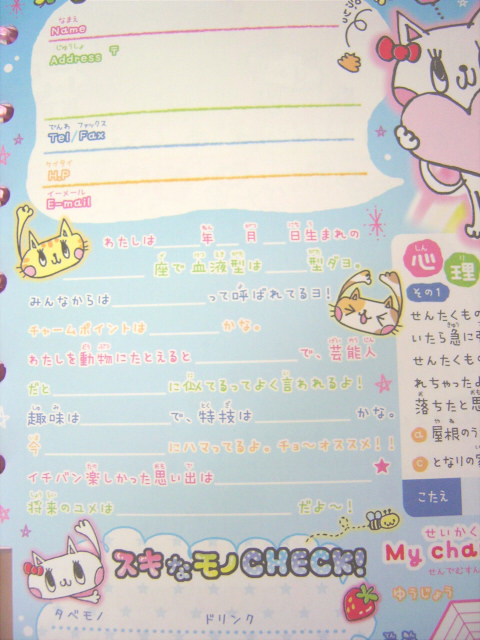 なまえ
Name
じゅうしょ
Address 〒
でんわ ファックス
Tel/Fax
ケイタイ
H.P
イーメール
E-mail
わたしは 年 月 日生まれの
座で血液型は 型ダヨ。
みんなからは って呼ばれてるヨ!
チャームポイントは かな。
わたしを動物にたとえると で、芸能人
だと に似てるってよく言われるよ!
趣味は で、特技は かな。
今 にハマってるよ。チョ〜オススメ!!
イチバン楽しかった思い出は
将来のユメは だよ〜!
スキなモノCHECK!
タベモノ ドリンク
心理
その1
せんたくもの
いたら急に
せんたくもの
れちゃったよ
落ちたと思
a 屋根のう
c となりの
こたえ
せいかく
My cha
せんでむすん
ゆうじょう